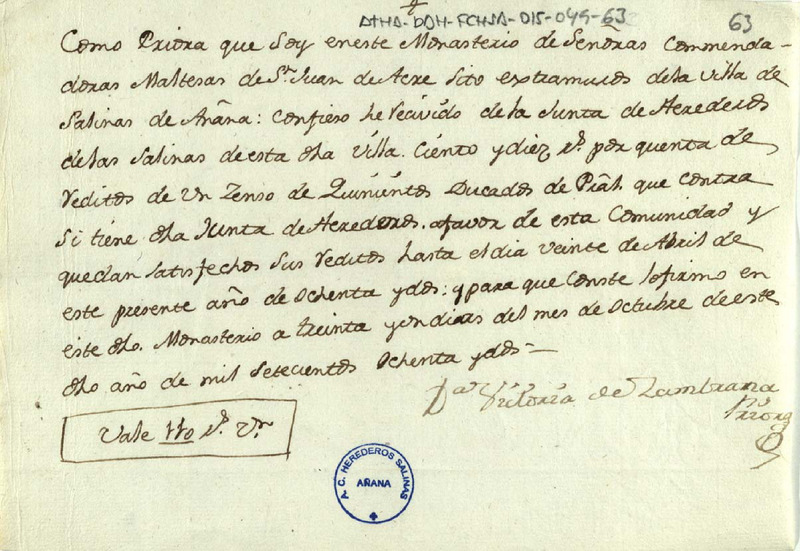 ATHA-DAH-FCHSA-015-049-63
63
Como Priora que Soy eneste Monasterio de Señoras Commenda-
doras Maltesas de Sn. Juan de Acre Sito extramuros dela villa de
Salinas de Añana: Confieso he Recivido de la Junta de Herederos
delas Salinas deesta dha villa. Ciento ydiez Rs. por quenta de
Reditos de Un Zenso de Quinientos Ducados de Pral. que contra
Si tiene dha Junta de Herederos. afavor de esta Comunidad y
quedan satisfechos sus Reditos hasta el dia veinte de Abril de
este presente año de Ochenta ydos: ypara que Conste lofirmo en
este dho. Monasterio a treinta yun dias del mes de Octubre deeste
dho año de mil Setecientos Ochenta ydos-
Da. Vitoria de Zambrana
Priora
Vale 110 Rs. Vn
A. C. HEREDEROS SALINAS
AÑANA